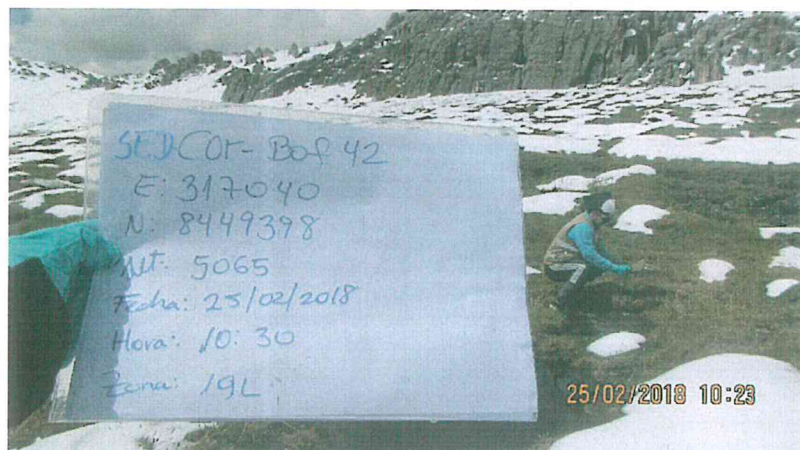 SED Cor-Bof 42
E: 317040
N: 8449398
Alt: 5065
Fecha: 25/02/2018
Hora: 10:30
Zona: 19L
25/02/2018 10:23